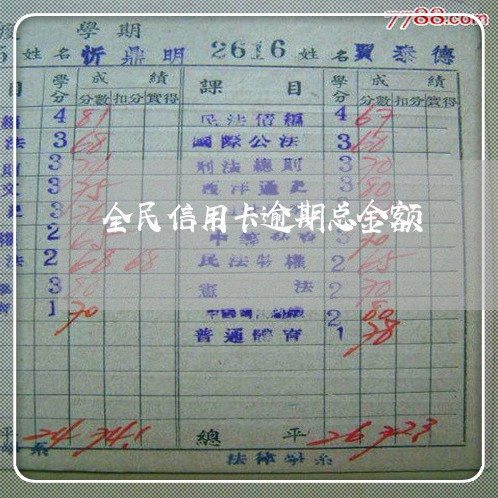 7788.com
學期
5 姓名 忻鼎明 2616 姓名 賈泰德
目 學分 成績 課目 學分 成績
分數 扣分 實得 分數 扣分 實得
4 81 民法債編 4 67
法 3 68 國際公法 3 60
3 刑法總則 3 70
3 75 西洋通史 3 80
全民信用卡逾期总金额
2 3 70
法 2 68 68 民法物權 2 65
3 80 憲法 2 70
1 70 2 80
普通體育 1 78
平 24 74.1 總平 26 72.3
系 法律學系